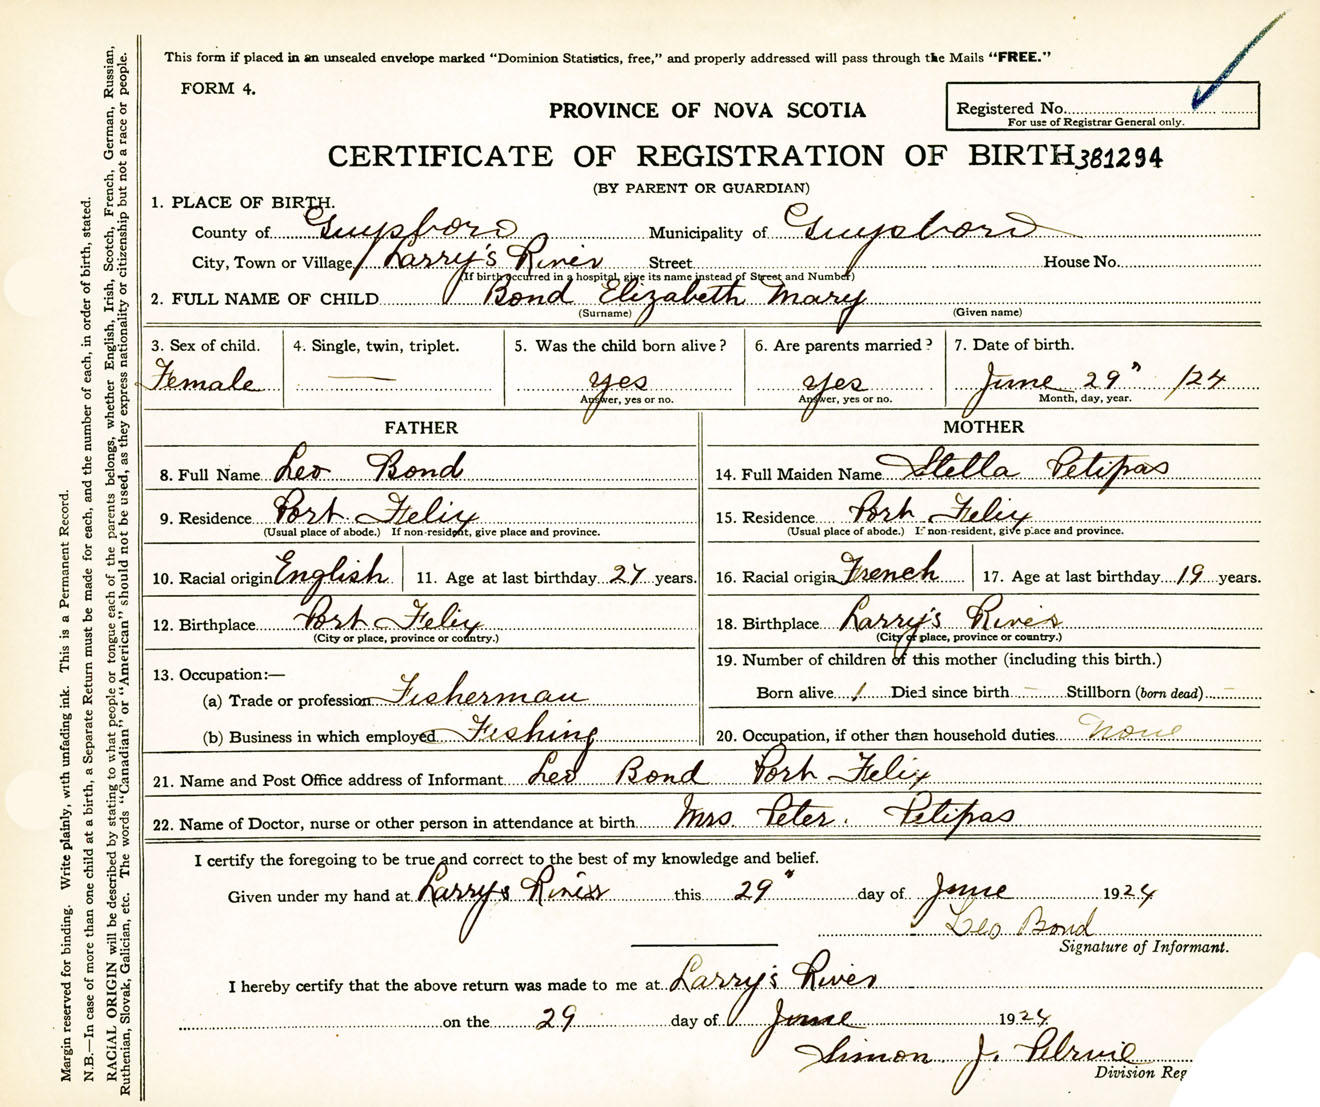 This form if placed in an unsealed envelope marked "Dominion Statistics, free," and properly addressed will pass through the Mails "FREE."
FORM 4.
PROVINCE OF NOVA SCOTIA
Registered No.
For use of Registrar General only.
CERTIFICATE OF REGISTRATION OF BIRTH 381294
(BY PARENT OR GUARDIAN)
1. PLACE OF BIRTH.
County of Guysboro Municipality of Guysboro
City, Town or Village Larry's River Street House No.
(If birth occurred in a hospital, give its name instead of Street and Number)
2. FULL NAME OF CHILD Bond Elizabeth Mary
(Surname) (Given name)
3. Sex of child. 4. Single, twin, triplet. 5. Was the child born alive? 6. Are parents married? 7. Date of birth.
Female — yes yes June 29" /24
Answer, yes or no. Answer, yes or no. Month, day, year.
FATHER
8. Full Name Leo Bond
9. Residence Port Felix
(Usual place of abode.) If non-resident, give place and province.
10. Racial origin English 11. Age at last birthday 27 years.
12. Birthplace Port Felix
(City or place, province or country.)
13. Occupation:—
(a) Trade or profession Fisherman
(b) Business in which employed Fishing
MOTHER
14. Full Maiden Name Stella Petipas
15. Residence Port Felix
(Usual place of abode.) If non-resident, give place and province.
16. Racial origin French 17. Age at last birthday 19 years.
18. Birthplace Larry's River
(City or place, province or country.)
19. Number of children of this mother (including this birth.)
Born alive 1 Died since birth – Stillborn (born dead) –
20. Occupation, if other than household duties None
21. Name and Post Office address of Informant Leo Bond Port Felix
22. Name of Doctor, nurse or other person in attendance at birth Mrs. Peter Petipas
I certify the foregoing to be true and correct to the best of my knowledge and belief.
Given under my hand at Larry's River this 29" day of June 1924
Leo Bond
Signature of Informant.
I hereby certify that the above return was made to me at Larry's River
on the 29 day of June 1924
Simon J.
Division Reg
Margin reserved for binding. Write plainly, with unfading ink. This is a Permanent Record.
N.B.—In case of more than one child at a birth, a Separate Return must be made for each, and the number of each, in order of birth, stated.
RACIAL ORIGIN will be described by stating to what people or tongue each of the parents belongs, whether English, Irish, Scotch, French, German, Russian,
Ruthenian, Slovak, Galician, etc. The words "Canadian" or "American" should not be used, as they express nationality or citizenship but not a race or people.